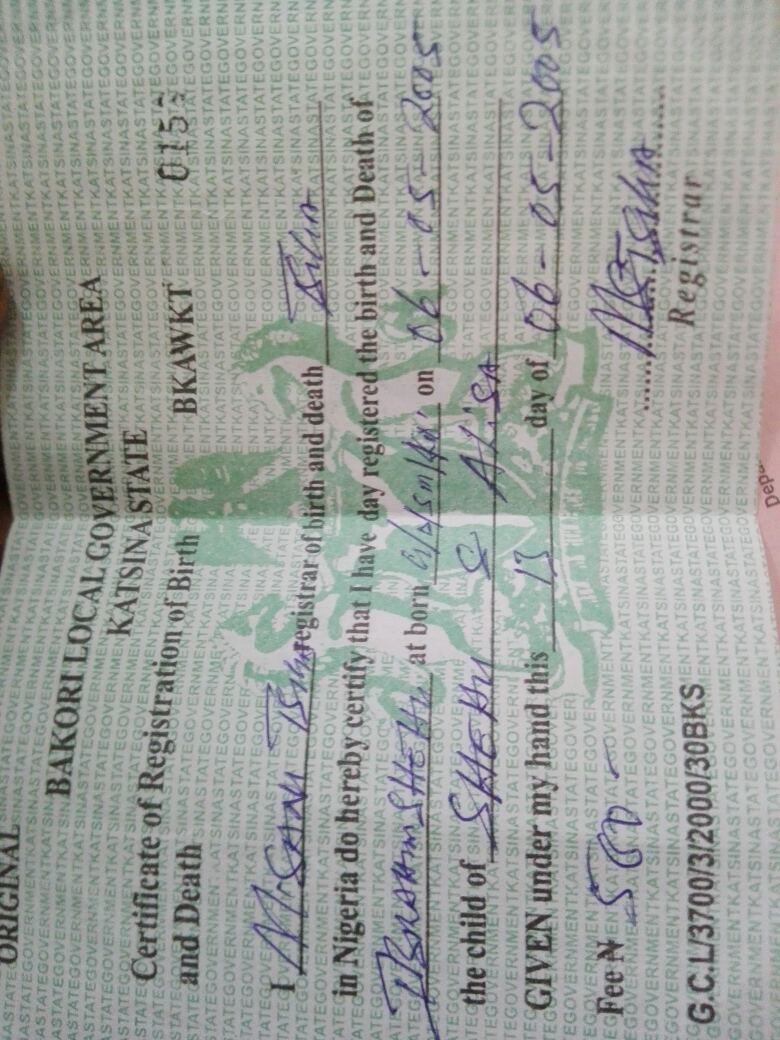 ORIGINAL
BAKORI LOCAL GOVERNMENT AREA
KATSINA STATE
Certificate of Registration of Birth
and Death BKAWKT 0153
I registrar of birth and death
in Nigeria do hereby certify that I have day registered the birth and Death of
IBRAHIM SHEHU at born on 06-05-2005
the child of SHEHU & ALISA
GIVEN under my hand this 13 day of 06-05-2005
Fee ₦ 500-
Registrar
G.C.L/3700/3/2000/30BKS